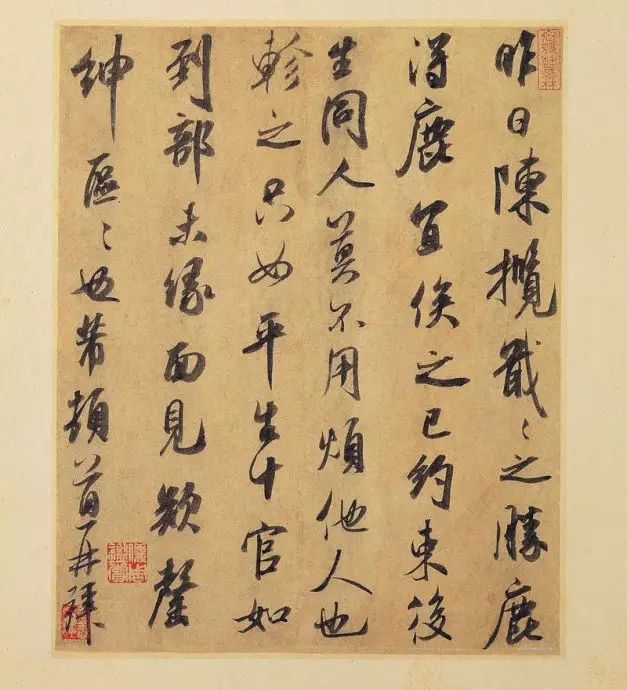 昨日陳攬戢々之勝鹿
得鹿宜俟之已約束後
生同人莫不用煩他人也
軫之只如平生十官如
到部未緣面見欵罄
紳區々也芾頓首再拜